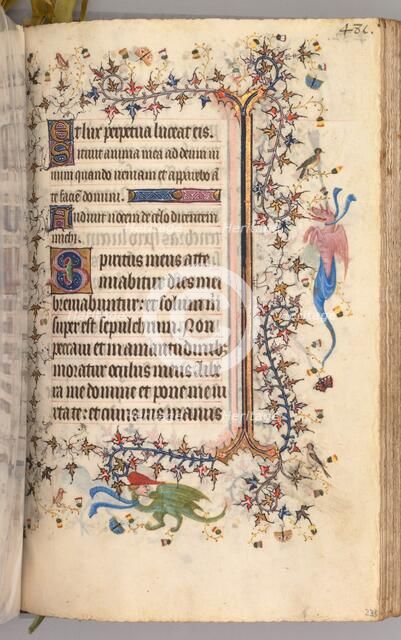 486.
Et lux perpetua luceat eis.
Sitiuit anima mea ad deum ui
uum quando ueniam et apparebo an
te faciem domini.
Audiui uocem de celo dicentem
michi.
Spiritus meus atte
nuabitur dies mei
breuiabuntur: et solum michi
super est sepulchrum. Non
peccaui et in amaritudinibus
moratur oculus meus. Libe
ra me domine et pone me iu
xta te: et cuius uis manus
Heritage Images